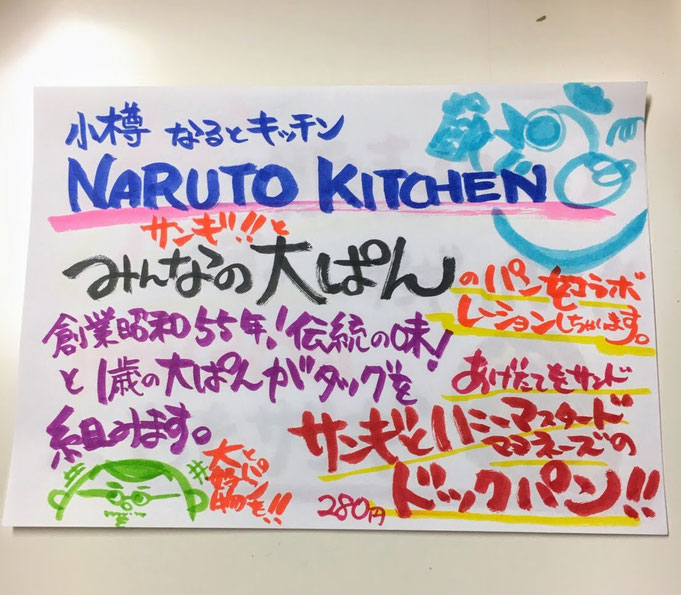 小樽 なるとキッチン
NARUTO KITCHEN
サンギ!!と
みんなの大ぱん
のパン
コラボ
レーションしちゃいます。
創業昭和55年!伝統の味!
と1歳の大ぱんがタッグを
組みます。
あげたてをサンド
サンギとハニーマスタード
マヨネーズの
ドックパン!!
280円